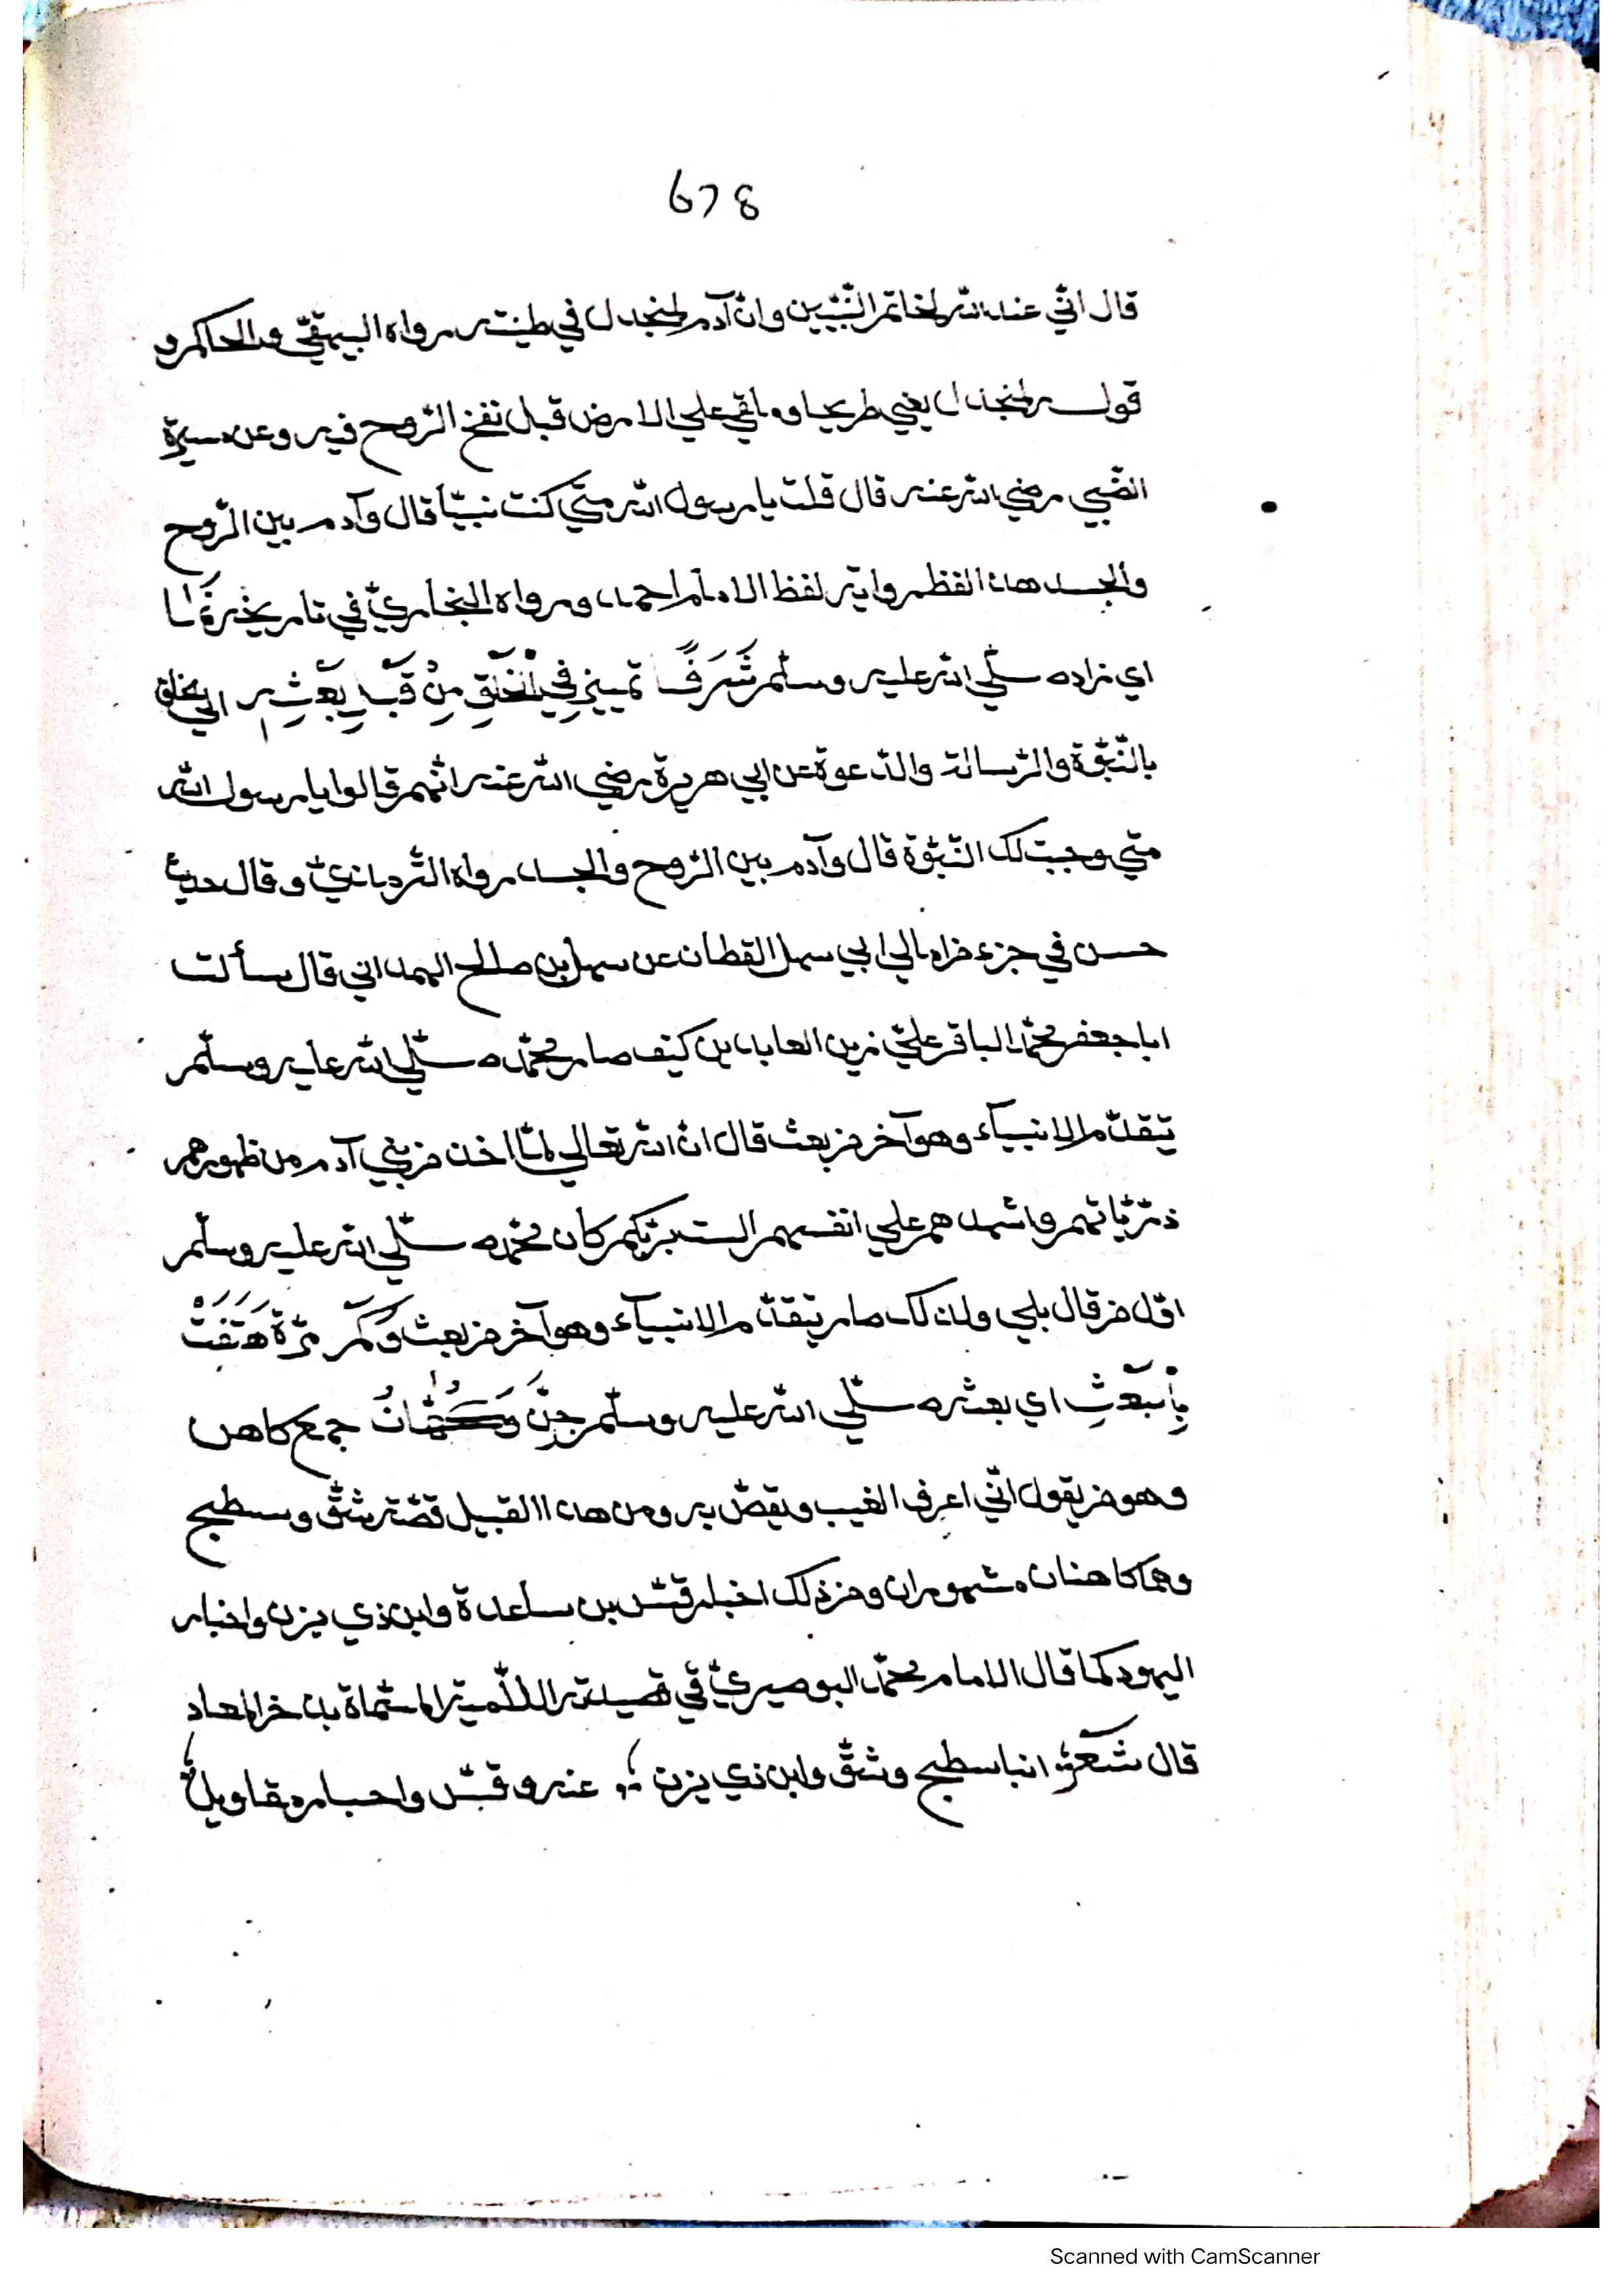 678
قال انّي عند الله لخاتم النّبيّين وانّ آدم لمنجدل في طينته رواه البيهقيّ والحاكم و
قوله لمنجدل يعني طريحا وملقي علي الارض قبل نفخ الرّوح فيه وعن ميسرة
الضّبي رضي الله عنه قال قلت يا رسول الله متي كنت نبيّا قال وآدم بين الرّوح
والجسد هذا لفظ رواية لفظ الامام احمد ورواه البخاريّ في تاريخه
اي زاده صلّي الله عليه وسلّم شَرَفًا تمييز فِي الْخَلْقِ مِنْ قَبْلِ بَعْثِهِ الي الخلق
بالنّبوّة والرّسالة والدّعوة عن ابي هريرة رضي الله عنه انّهم قالوا يا رسول الله
متي وجبت لك النّبوّة قال وآدم بين الرّوح والجسد رواه التّرمذيّ وقال حديث
حسن في جزء من امالي ابي سهل القطان عن سهل بن صالح الهمداني قال سألت
ابا جعفر محمّد الباقر عليّ زين العابدين كيف صار محمّد صلّي الله عليه وسلّم
يتقدّم الانبيآء وهو آخر من بعث قال انّ الله تعالي لمّا اخذ من بني آدم من ظهورهم
ذرّيّاتهم واشهدهم علي انفسهم الست بربّكم كان محمّد صلّي الله عليه وسلّم
اوّل من قال بلي ولذلك صار يتقدّم الانبيآء وهو آخر من بعث وَكَمْ مرّة هَتَفَتْ
بِالْبَعْثِ اي بعثه صلّي الله عليه وسلّم جِنّ وَكُهَّانُ جمع كاهن
وهو من يقول انّي اعرف الغيب ويقصّ به ومن هذا القبيل قصّة شقّ وسطيح
وهما كاهنان مشهوران ومن ذلك اخبار قسّ بن ساعدة وابن ذي يزن واخبار
اليهود كما قال الامام محمّد البوصيريّ في قصيدته اللّاميّة المسّماة بذخر المعاد
قال شعر انبا سطيح وشقّ وابن ذي يزن ؛ عنه وقسّ واحبار مقاويل
Scanned with CamScanner